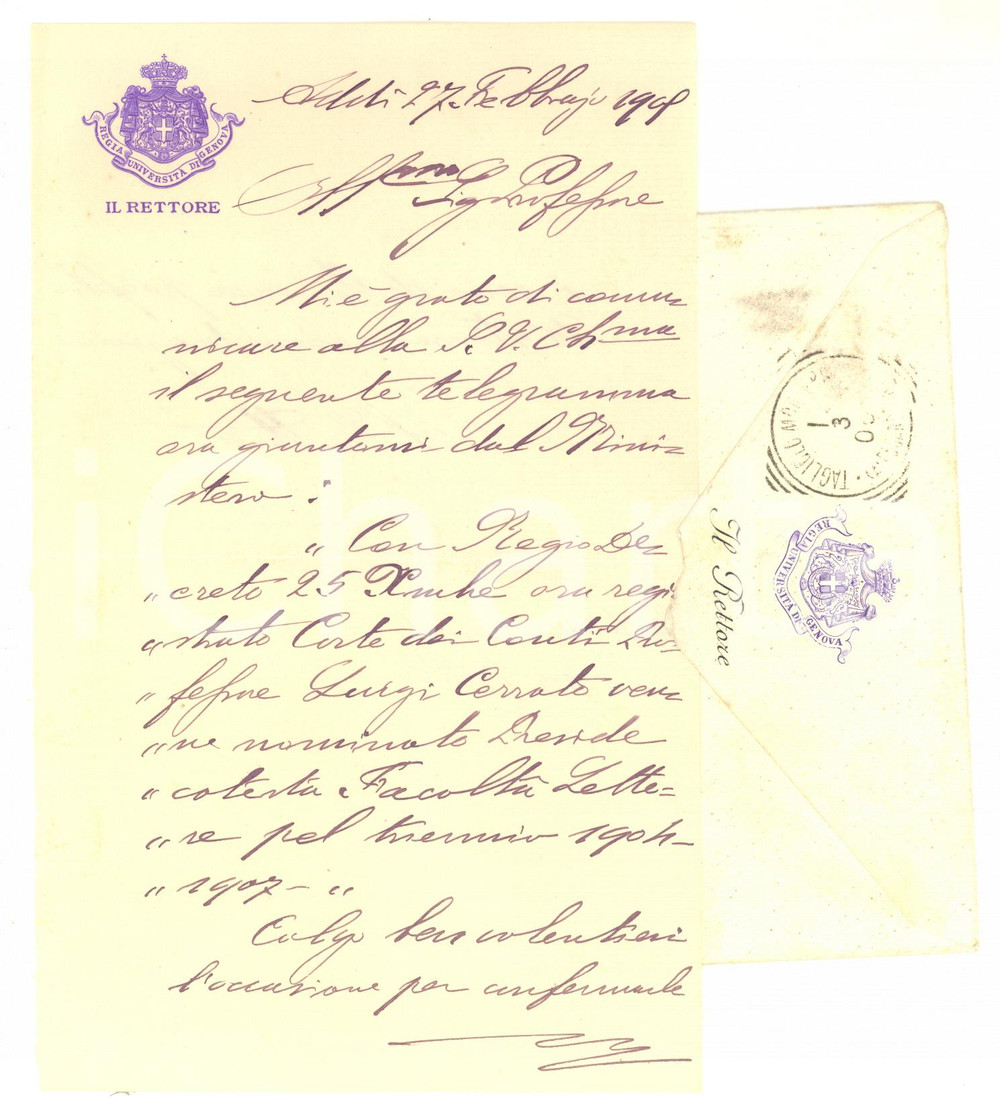 REGIA UNIVERSITÀ DI GENOVA
IL RETTORE
Addì 27. Febbrajo 1905
Ill mo Signor Professore
Mi è grato di comu=
nicare alla S. V. Ch ma
il seguente telegramma
ora giuntomi dal Mini=
stero :
" Con Regio De=
" creto 25 Xmbe ora regi
" strato Corte dei Conti Pro=
" fessore Luigi Cerrato ven=
" ne nominato Preside
" cotesta Facoltà Lette=
" re pel triennio 1904-
" 1907 - "
Colgo ben volentieri
l'occasione per confermarle
TAGLIOLO MON
1
3
05
REGIA UNIVERSITÀ DI GENOVA
Il Rettore